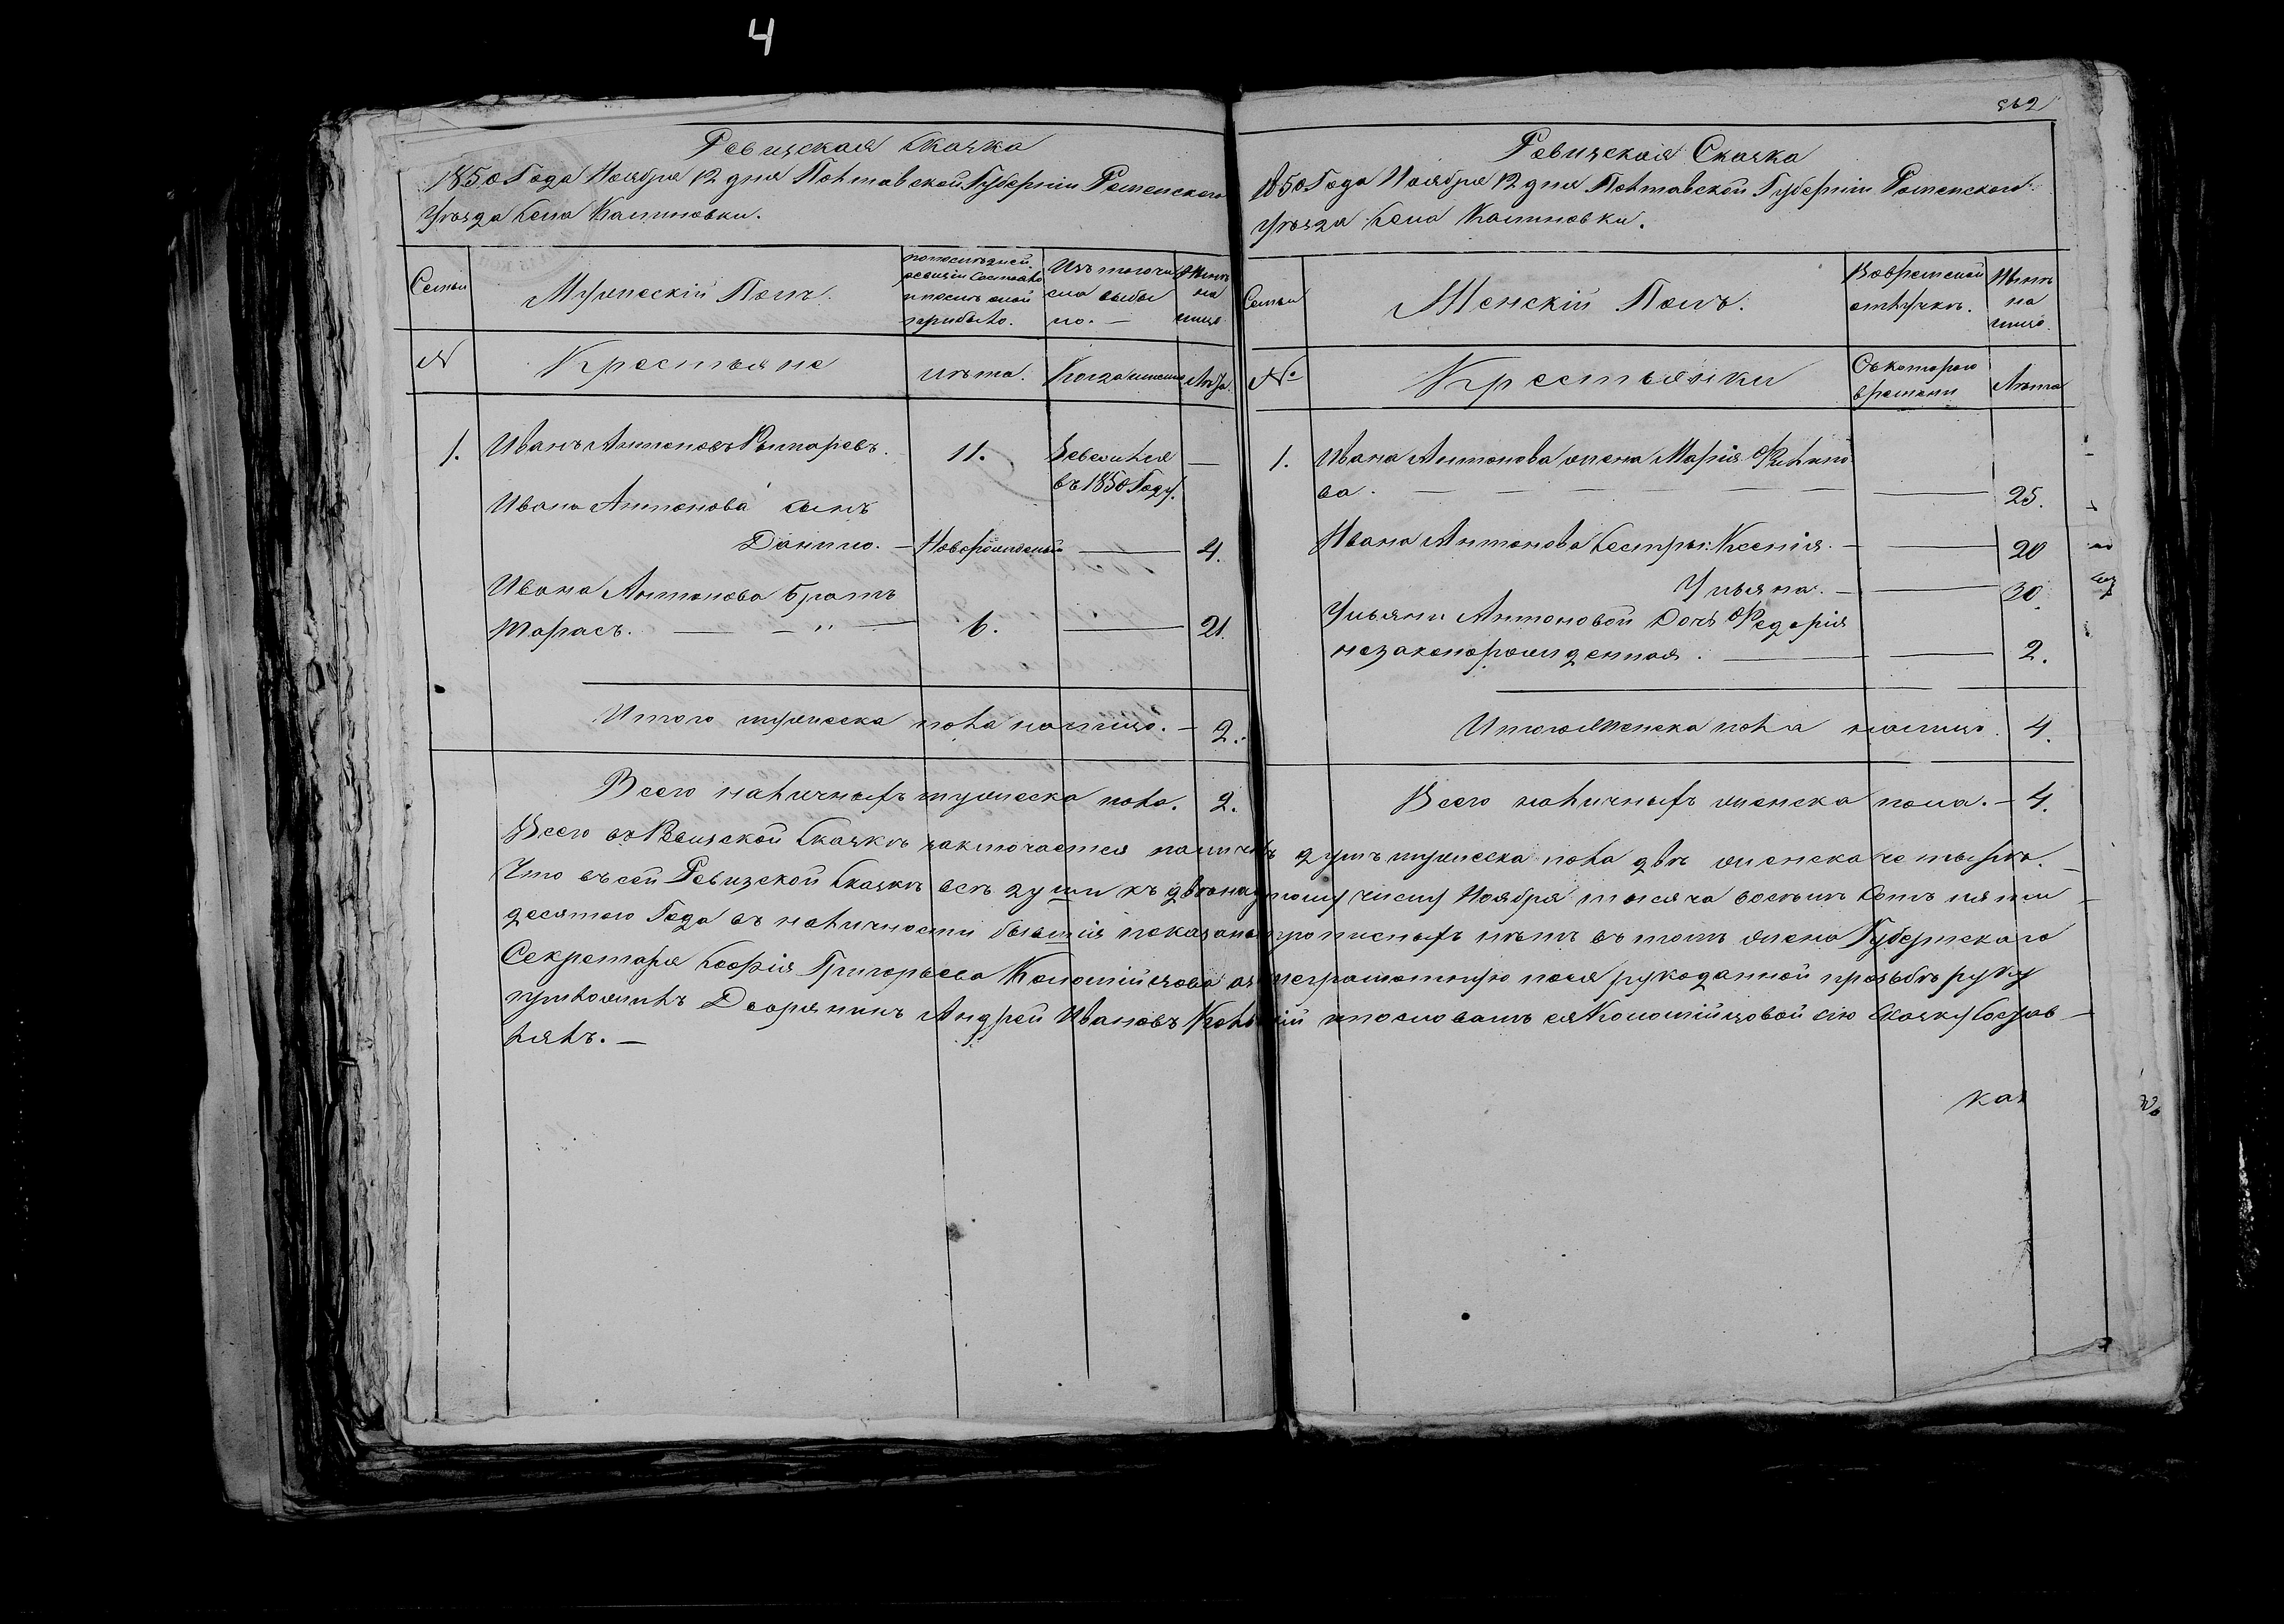 4
Ревизская Сказка
1850 Года Ноября 12 дня Полтавской Губерніи Роменского
Уѣзда Села Калиновки.
Семьи
Мужескій Полъ.
По последней
ревизіи Состояло
и послѣ оной
прибыло.
Изъ того чи
сла выбы
ло. —
Нынѣ
на
лицо
№
Крестьяне
Лѣта.
Когда именно
Лѣта.
1. Иванъ Антоновъ 11. —
въ 1850 Году.
Ивана Антонова сынъ
Данило. — Новорожденый — 4.
Ивана Антонова братъ
Тарасъ. — — " — 6. — 21.
Итого мужеска пола налицо. — 2.
Всего наличныхъ мужеска пола. 2.
362
Ревизская Сказка
1850 Года Ноября 12 дня Полтавской Губерніи Роменского
Уѣзда Села Калиновки.
Семьи
Женскій Полъ.
Во временной
отлучкѣ.
Нынѣ
на
лицо.
№
Крестьянки
Съ которого
времени
Лѣта
1. Ивана Антонова жена Марія
ва. — — — — — — — 25.
Ивана Антонова Сестры: Ксенія. — — 20
Ульяна. — — 30.
Ульяны Антоновой Дочь Федорія
незаконорожденная. — — 2.
Итого Женска пола налицо. 4.
Всего наличныхъ женска пола. — 4.
Всего въ Ревизской Сказкѣ заключается наличныхъ душъ мужеска пола двѣ женска четыре. —
Что въ сей Ревизской Сказкѣ всѣ души къ двѣнадцатому числу Ноября тысяча восемь Сотъ пяти —
десятого Года въ наличности бывшія показаны прописныхъ нѣтъ въ томъ жена Губернского
Секретаря Софія Григорьева Коломійцова а за неграмотную поея рукоданной прозьбѣ руку
приложилъ Дворянинъ Андрей Ивановъ и пословамъ ея Коломійцовой сію Сказку Состав —
лялъ. —
каз